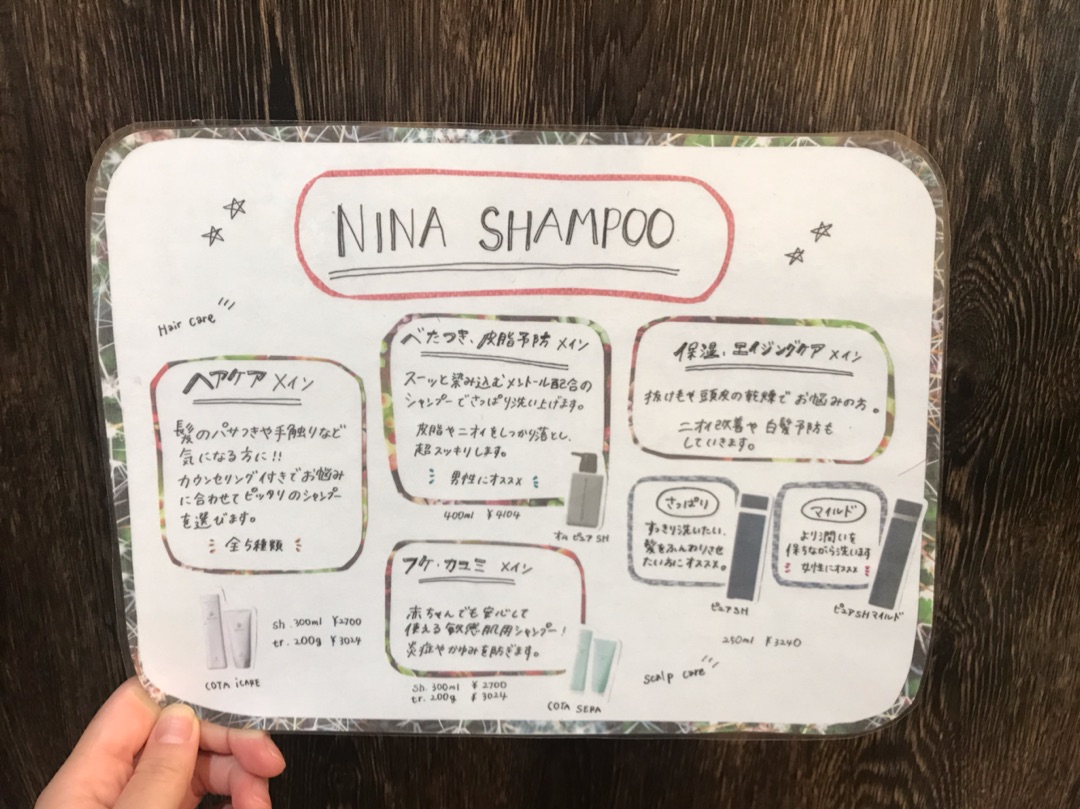 NINA SHAMPOO
Hair care
ヘアケア メイン
髪のパサつきや手触りなど
気になる方に!!
カウンセリング付きでお悩み
に合わせてピッタリのシャンプー
を選びます。
全5種類
sh.300ml ¥2700
tr.200g ¥3024
COTA iCARE
べたつき、皮脂予防 メイン
スーッと染み込むメントール配合の
シャンプーでさっぱり洗い上げます。
皮脂やニオイをしっかり落とし、
超スッキリします。
男性にオススメ
400ml ¥4104
オム ピュアSH
フケ・カユミ メイン
赤ちゃんでも安心して
使える敏感肌用シャンプー!
炎症やかゆみを防ぎます。
sh.300ml ¥2700
tr.200g ¥3024
COTA SERA
保湿、エイジングケア メイン
抜け毛や頭皮の乾燥でお悩みの方。
ニオイ改善や白髪予防も
していきます。
さっぱり
すっきり洗いたい、
髪をふんわりさせ
たい方にオススメ。
ピュアSH
マイルド
より潤いを
保ちながら洗います
女性にオススメ
ピュアSHマイルド
250ml ¥3240
scalp care